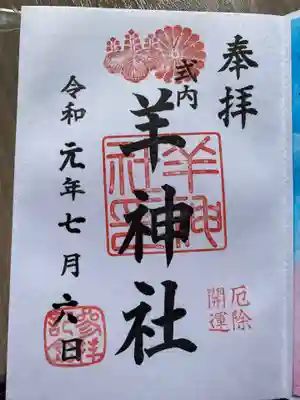 奉拝
厄除
開運
式内
羊神社
羊神
社印
令和元年七月六日
参拝
記念